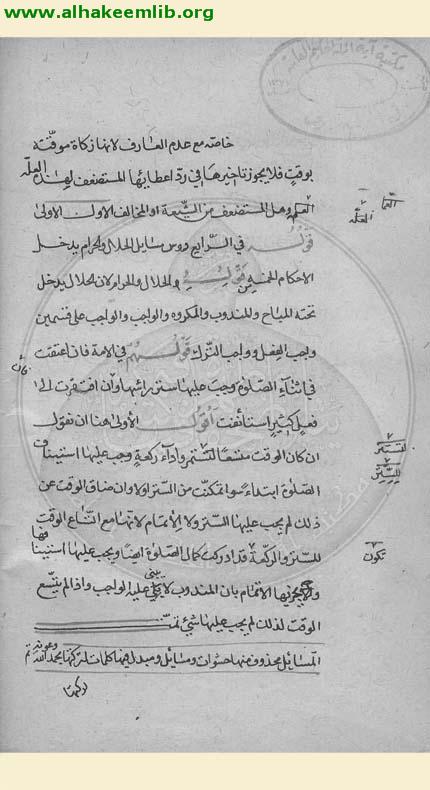 www.alhakeemlib.org
خاصة مع عدم العارف لانها زكاة موقتة
بوقت فلا يجوز تاخيرها في رد اعطائها المستضعف لهذه العلة
وهل المستضعف من الشيعة او المخالف الاول الاولى
قوله في الرابع دوس مسايل الحلال والحرام يدخل
الاحكام الخمسة قوله والحلال والحرام لان الحلال يدخل
تحته المباح والمندوب والمكروه والواجب والواجب على قسمين
واجب الفعل وواجب الترك قولهم في الامة فان اعتقت
في اثناء الصلوة وجب عليها ستر رائسها وان افتقرت الى
فعل كثير استأنفت اقول الأولى هنا ان نقول
ان كان الوقت متسعا للتستر واداء ركعة وجب عليها استيناف
الصلوة ابتداء سوا تمكنت من الستر اولا وان ضاق الوقت عن
ذلك لم يجب عليها الستر ولا الاتمام لانها مع اتساع الوقت
للستر والركعة قد ادركت كمال الصلوة ايضا ويجب عليها استينافها
ولا يجزيها الاتمام بان المندوب لا يبنى عليه الواجب واذا لم يتسع
الوقت لذلك لم يجب عليها شئ تمت
المسائل محذوف منها حشوات ومسايل ومبدل فيها كلمات بحمد الله وعونه
للستر
تكون